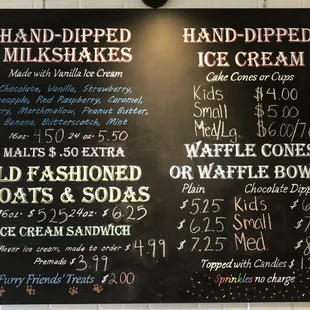 HAND-DIPPED
MILKSHAKES
Made with Vanilla Ice Cream
Chocolate, Vanilla, Strawberry,
Red Raspberry, Caramel,
Marshmallow, Peanut Butter,
Banana, Butterscotch, Mint
16oz 4.50 24 oz 5.50
MALTS $ .50 EXTRA
OLD FASHIONED
FLOATS & SODAS
16oz $5.25 24oz $6.25
ICE CREAM SANDWICH
flavor ice cream, made to order $4.99
Premade $3.99
Furry Friends' Treats $2.00
HAND-DIPPED
ICE CREAM
Cake Cones or Cups
Kids $4.00
Small $5.00
Med/Lg. $6.00/7.
WAFFLE CONES
OR WAFFLE BOW
Plain Chocolate Dipp
$5.25 Kids $6
$6.25 Small $
$7.25 Med. $8
Topped with Candies $1
Sprinkles no charge